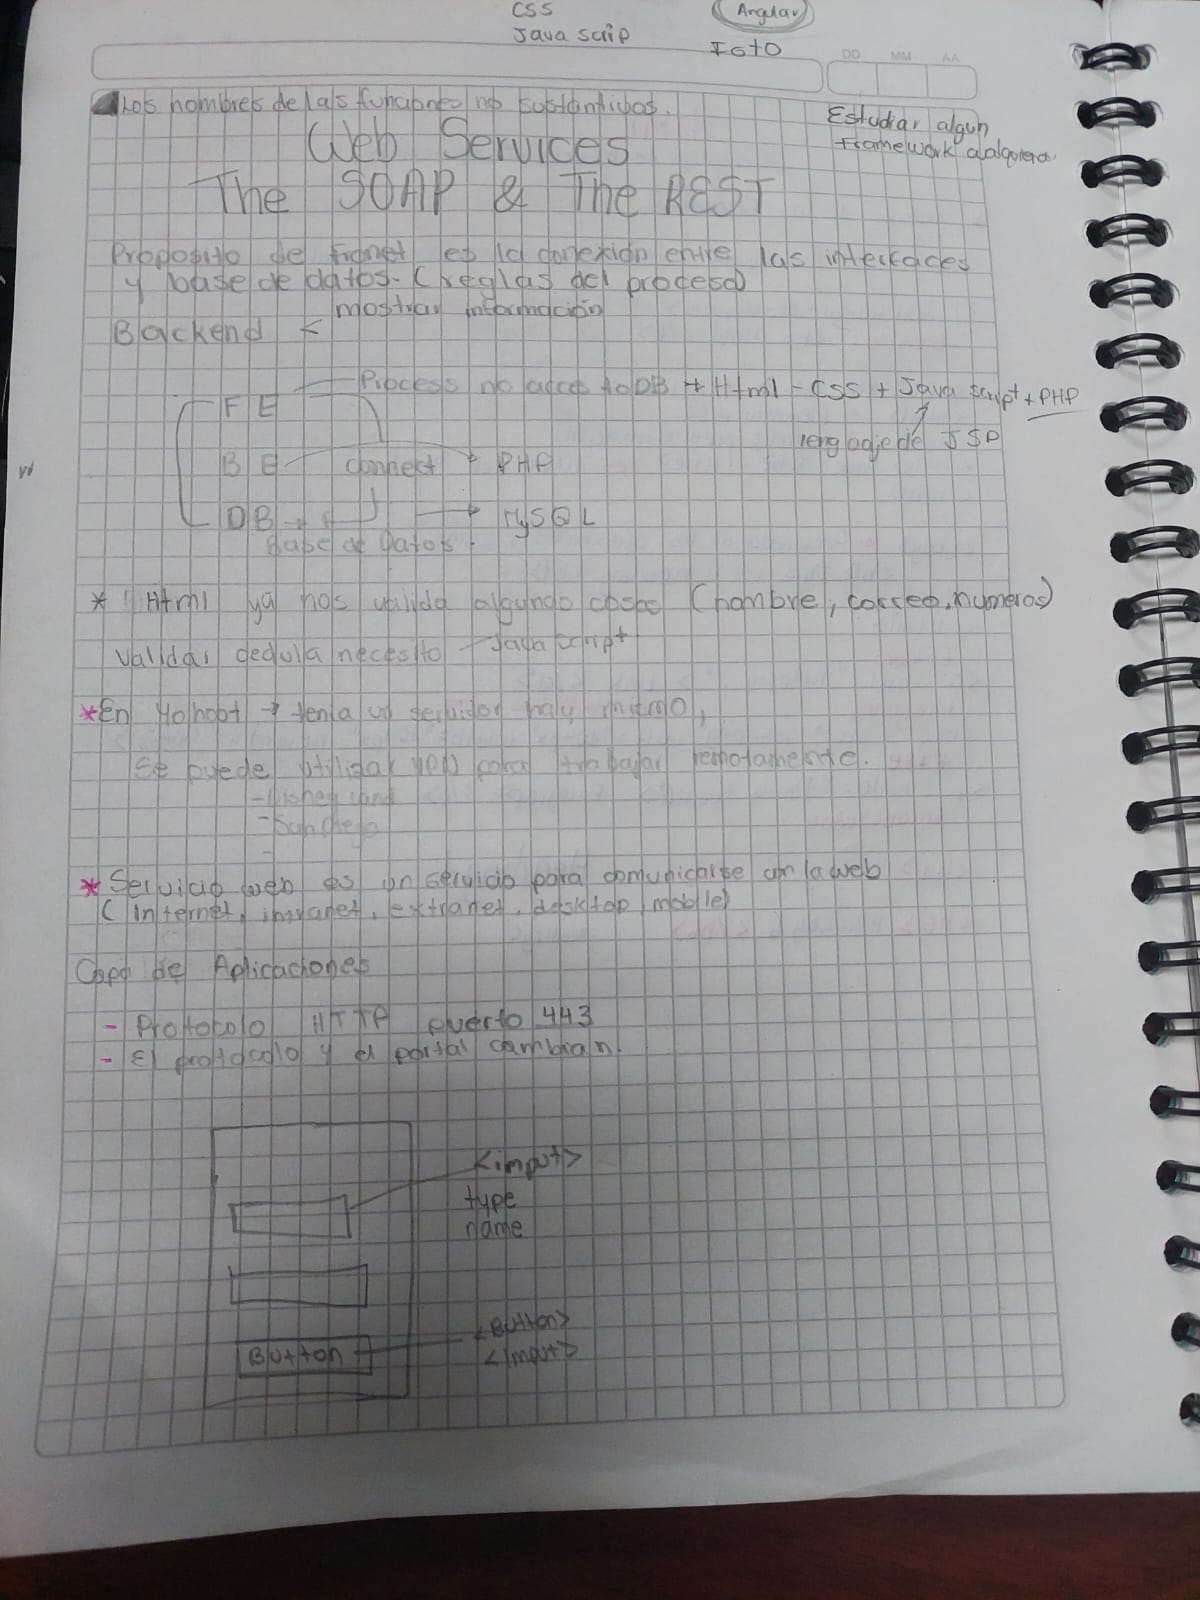 CSS
Java scrip
Angular
Foto
DD MM AA
Los nombres de las funciones no sustantivos.
Estudiar algun
framework cualquiera
Web Services
The SOAP & The REST
Proposito de es la conexión entre las interfaces
y base de datos. (reglas del proceso)
mostrar información
Backend <
Process no acces to DB + Html - CSS + Java script + PHP
FE
lenguaje de JSP
BE connect PHP
DB MySQL
Base de Datos.
* Html ya nos valida algunas cosas (nombre, correo, numeros)
Validar cedula necesito - Java script
*En → tenia un servidor
Se puede utilizar VPN para trabajar remotamente.
- Disney land
- San Diego
-
* Servicio web es un servicio para comunicarse con la web
(Internet, intranet, extranet, desktop, mobile)
Capa de Aplicaciones
- Protocolo HTTP puerto 443
- El protocolo y el portal cambian.
<input>
type
name
<Button>
Button
<Input>